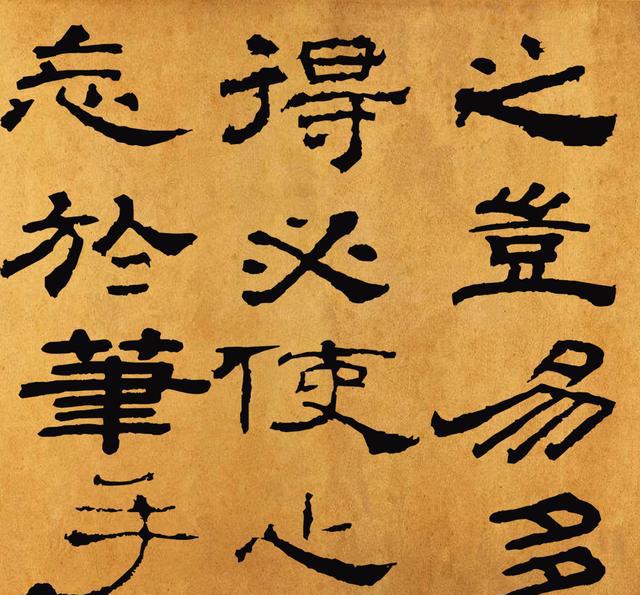 之豈易多
得必使心
忘於筆手